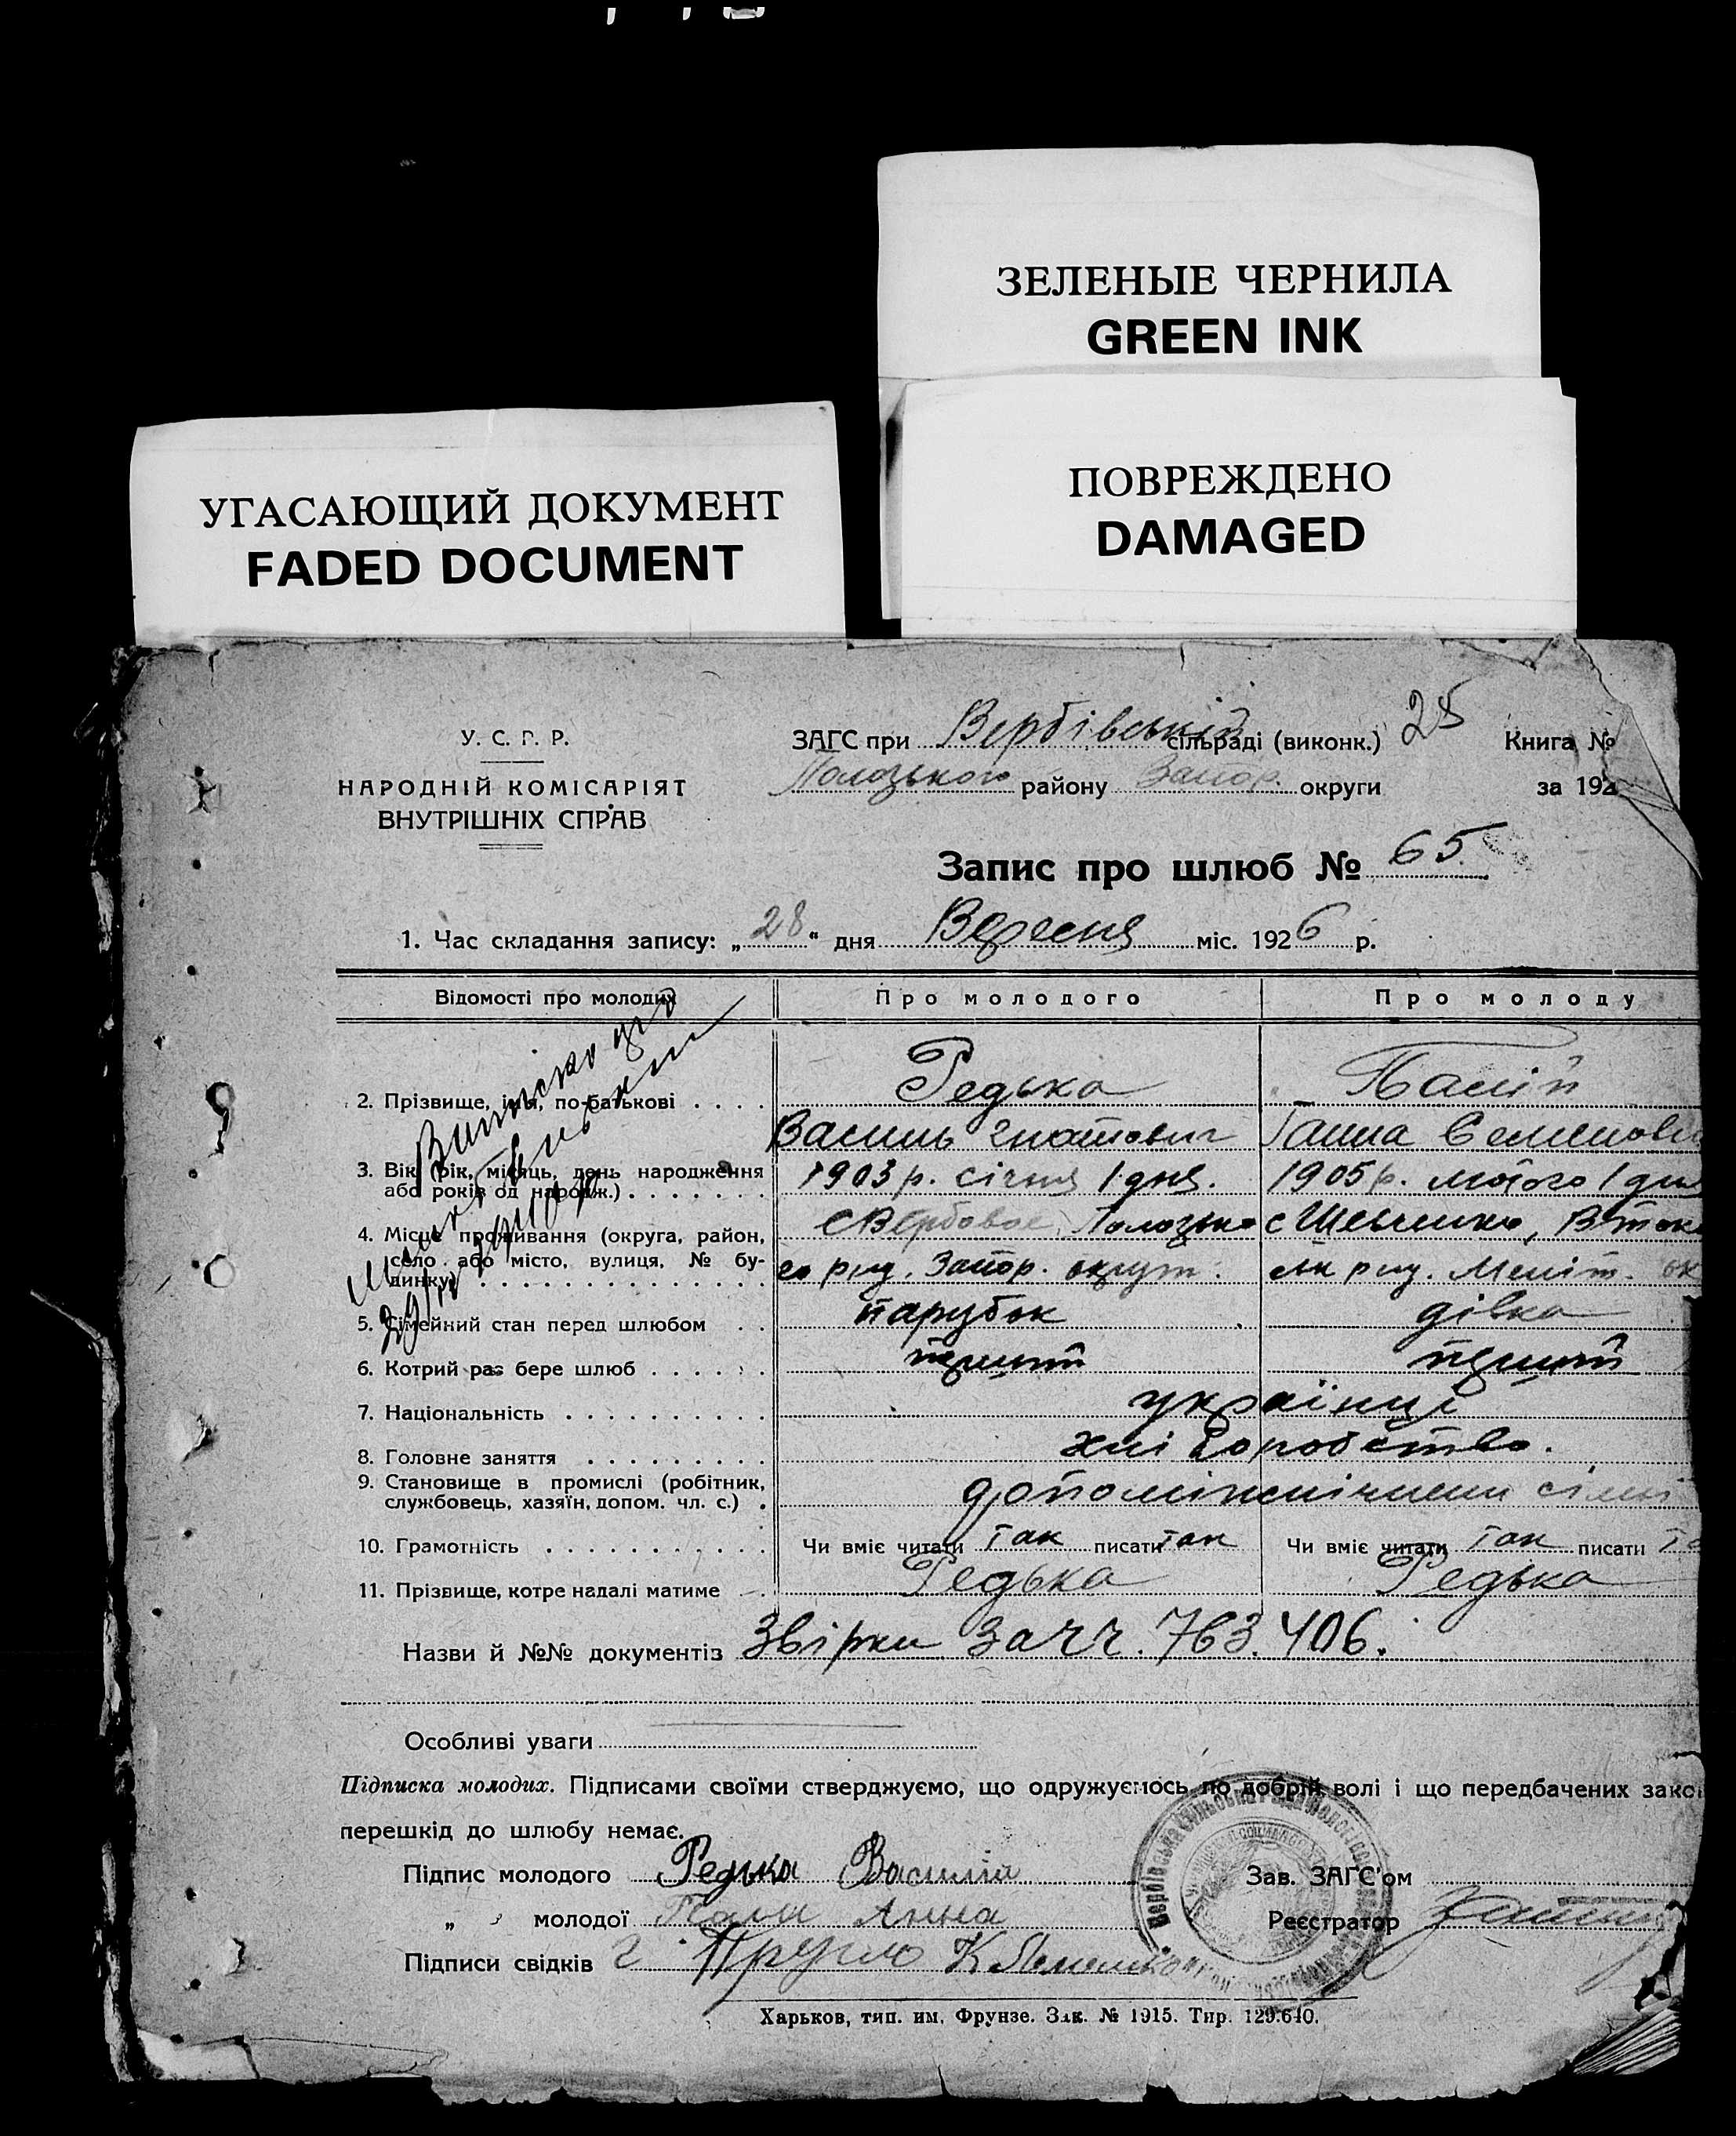 ЗЕЛЕНЫЕ ЧЕРНИЛА
GREEN INK
ПОВРЕЖДЕНО
DAMAGED
УГАСАЮЩИЙ ДОКУМЕНТ
FADED DOCUMENT
У. С. Р. Р.
НАРОДНІЙ КОМІСАРІЯТ
ВНУТРІШНІХ СПРАВ
ЗАГС при Вербівській сільраді (виконк.) 28 Книга №
Полозького району Запор. округи за 192
Запис про шлюб № 65
1. Час складання запису: „28“ дня Вересня міс. 1926 р.
Відомості про молодих Про молодого Про молоду
2. Прізвище, імя, по-батькові Редька Палій
Василь Гнатович Ганна Семенові
3. Вік (рік, місяць, день народження або років од народж.) 1903 р. січня 1 дня. 1905 р. лютого 1 дня
4. Місце проживання (округа, район, село або місто, вулиця, № будинку) с Вербовое, Полозько с Шевченко, В Ток
го рну. Запор. округи. рну. Меліт. ок
5. Сімейний стан перед шлюбом парубок дівка
6. Котрий раз бере шлюб перший перший
7. Національність українці
8. Головне заняття хліборобство.
9. Становище в промислі (робітник, службовець, хазяїн, допом. чл. с.) сімї
10. Грамотність Чи вміє читати так писати так Чи вміє читати так писати та
11. Прізвище, котре надалі матиме Редька Редька
Назви й №№ документів Звірки за чч. 763. 406.
Особливі уваги
Підписка молодих. Підписами своїми стверджуємо, що одружуємось по добрій волі і що передбачених зако
перешкід до шлюбу немає.
Підпис молодого Редька Василій Зав. ЗАГС'ом
„ молодої Пали Анна Реєстратор
Підписи свідків
Харьков, тип. им. Фрунзе. Зак. № 1915. Тир. 129.640.